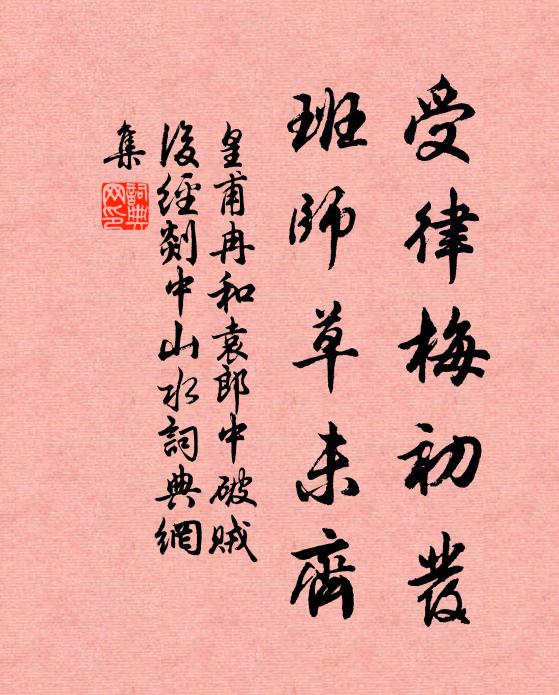 受律梅初發
班師草未齊
皇甫冉和袁郎中破賊
後經剡中山水詞典網
集
詞典
网印